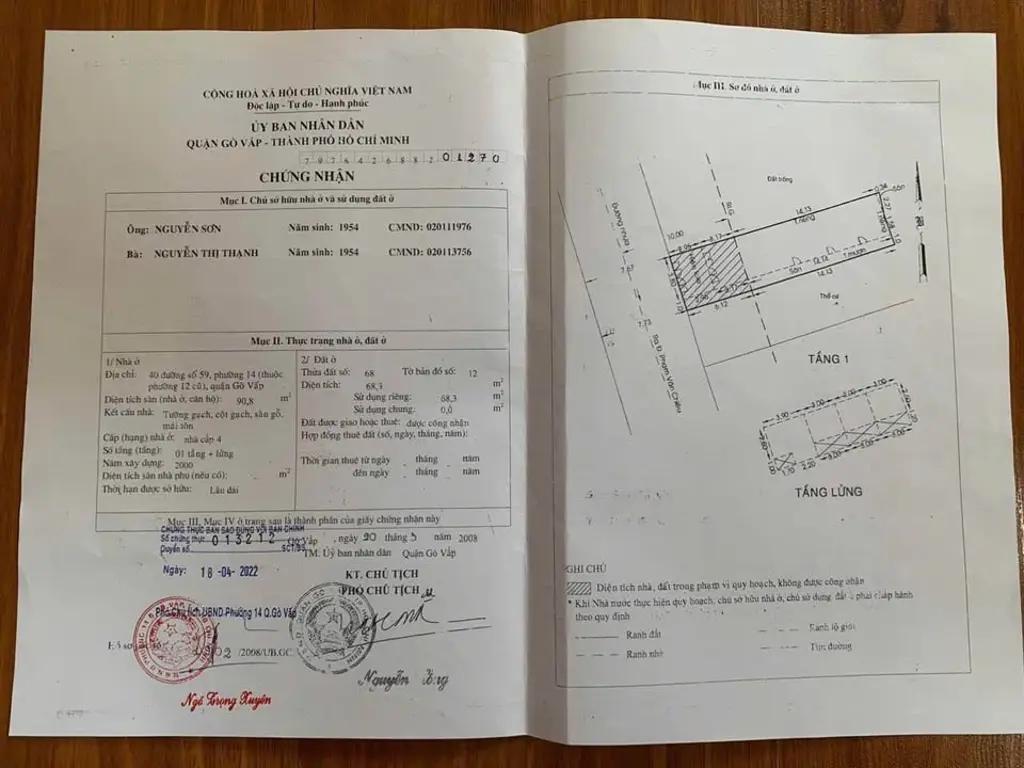 CỘNG HOÀ XÃ HỘI CHỦ NGHĨA VIỆT NAM
Độc lập - Tự do - Hạnh phúc
ỦY BAN NHÂN DÂN
QUẬN GÒ VẤP - THÀNH PHỐ HỒ CHÍ MINH
01270
CHỨNG NHẬN
Mục I. Chủ sở hữu nhà ở và sử dụng đất ở
Ông: NGUYỄN SƠN Năm sinh: 1954 CMND: 020111976
Bà: NGUYỄN THỊ THẠNH Năm sinh: 1954 CMND: 020113756
Mục II. Thực trạng nhà ở, đất ở
1/ Nhà ở
Địa chỉ: 40 đường số 59, phường 14 (thuộc
phường 12 cũ), quận Gò Vấp
Diện tích sàn (nhà ở, căn hộ): 90,8 m²
Kết cấu nhà: Tường gạch, cột gạch, sàn gỗ,
mái tôn
Cấp (hạng) nhà ở: nhà cấp 4
Số tầng (tầng): 01 tầng + lửng
Năm xây dựng: 2000
Diện tích sàn nhà phụ (nếu có): m²
Thời hạn được sở hữu: Lâu dài
2/ Đất ở
Thửa đất số: 68 Tờ bản đồ số: 12
Diện tích: 68,3 m²
Sử dụng riêng: 68,3 m²
Sử dụng chung: 0,0 m²
Đất được giao hoặc thuê: được công nhận
Hợp đồng thuê đất (số, ngày, tháng, năm):
Thời gian thuê từ ngày tháng năm
đến ngày tháng năm
Mục III, Mục IV ở trang sau là thành phần của giấy chứng nhận này
CHỨNG THỰC BẢN SAO ĐÚNG VỚI BẢN CHÍNH
Số chứng thực: 013212
Quyển số: SCT/BS
Gò Vấp, ngày 20 tháng 5 năm 2008
TM. Ủy ban nhân dân Quận Gò Vấp
Ngày: 18-04-2022
KT. CHỦ TỊCH
PHÓ CHỦ TỊCH
Phó Chủ tịch UBND Phường 14 Q.Gò Vấp
/2008/UB.GC
Ngô Trọng Xuyên
Mục III. Sơ đồ nhà ở, đất ở
Đất trống
Đường nhựa
14.13
T.riêng
10,00
7.73
Sân
T.mượn
14.13
6.12
Thổ cư
TẦNG 1
3.90
3.00
3.00
TẦNG LỬNG
GHI CHÚ
Diện tích nhà, đất trong phạm vi quy hoạch, không được công nhận
* Khi Nhà nước thực hiện quy hoạch, chủ sở hữu nhà ở, chủ sử dụng đất ở phải chấp hành
theo quy định
Ranh đất
Ranh lộ giới
Ranh nhà
Tim đường